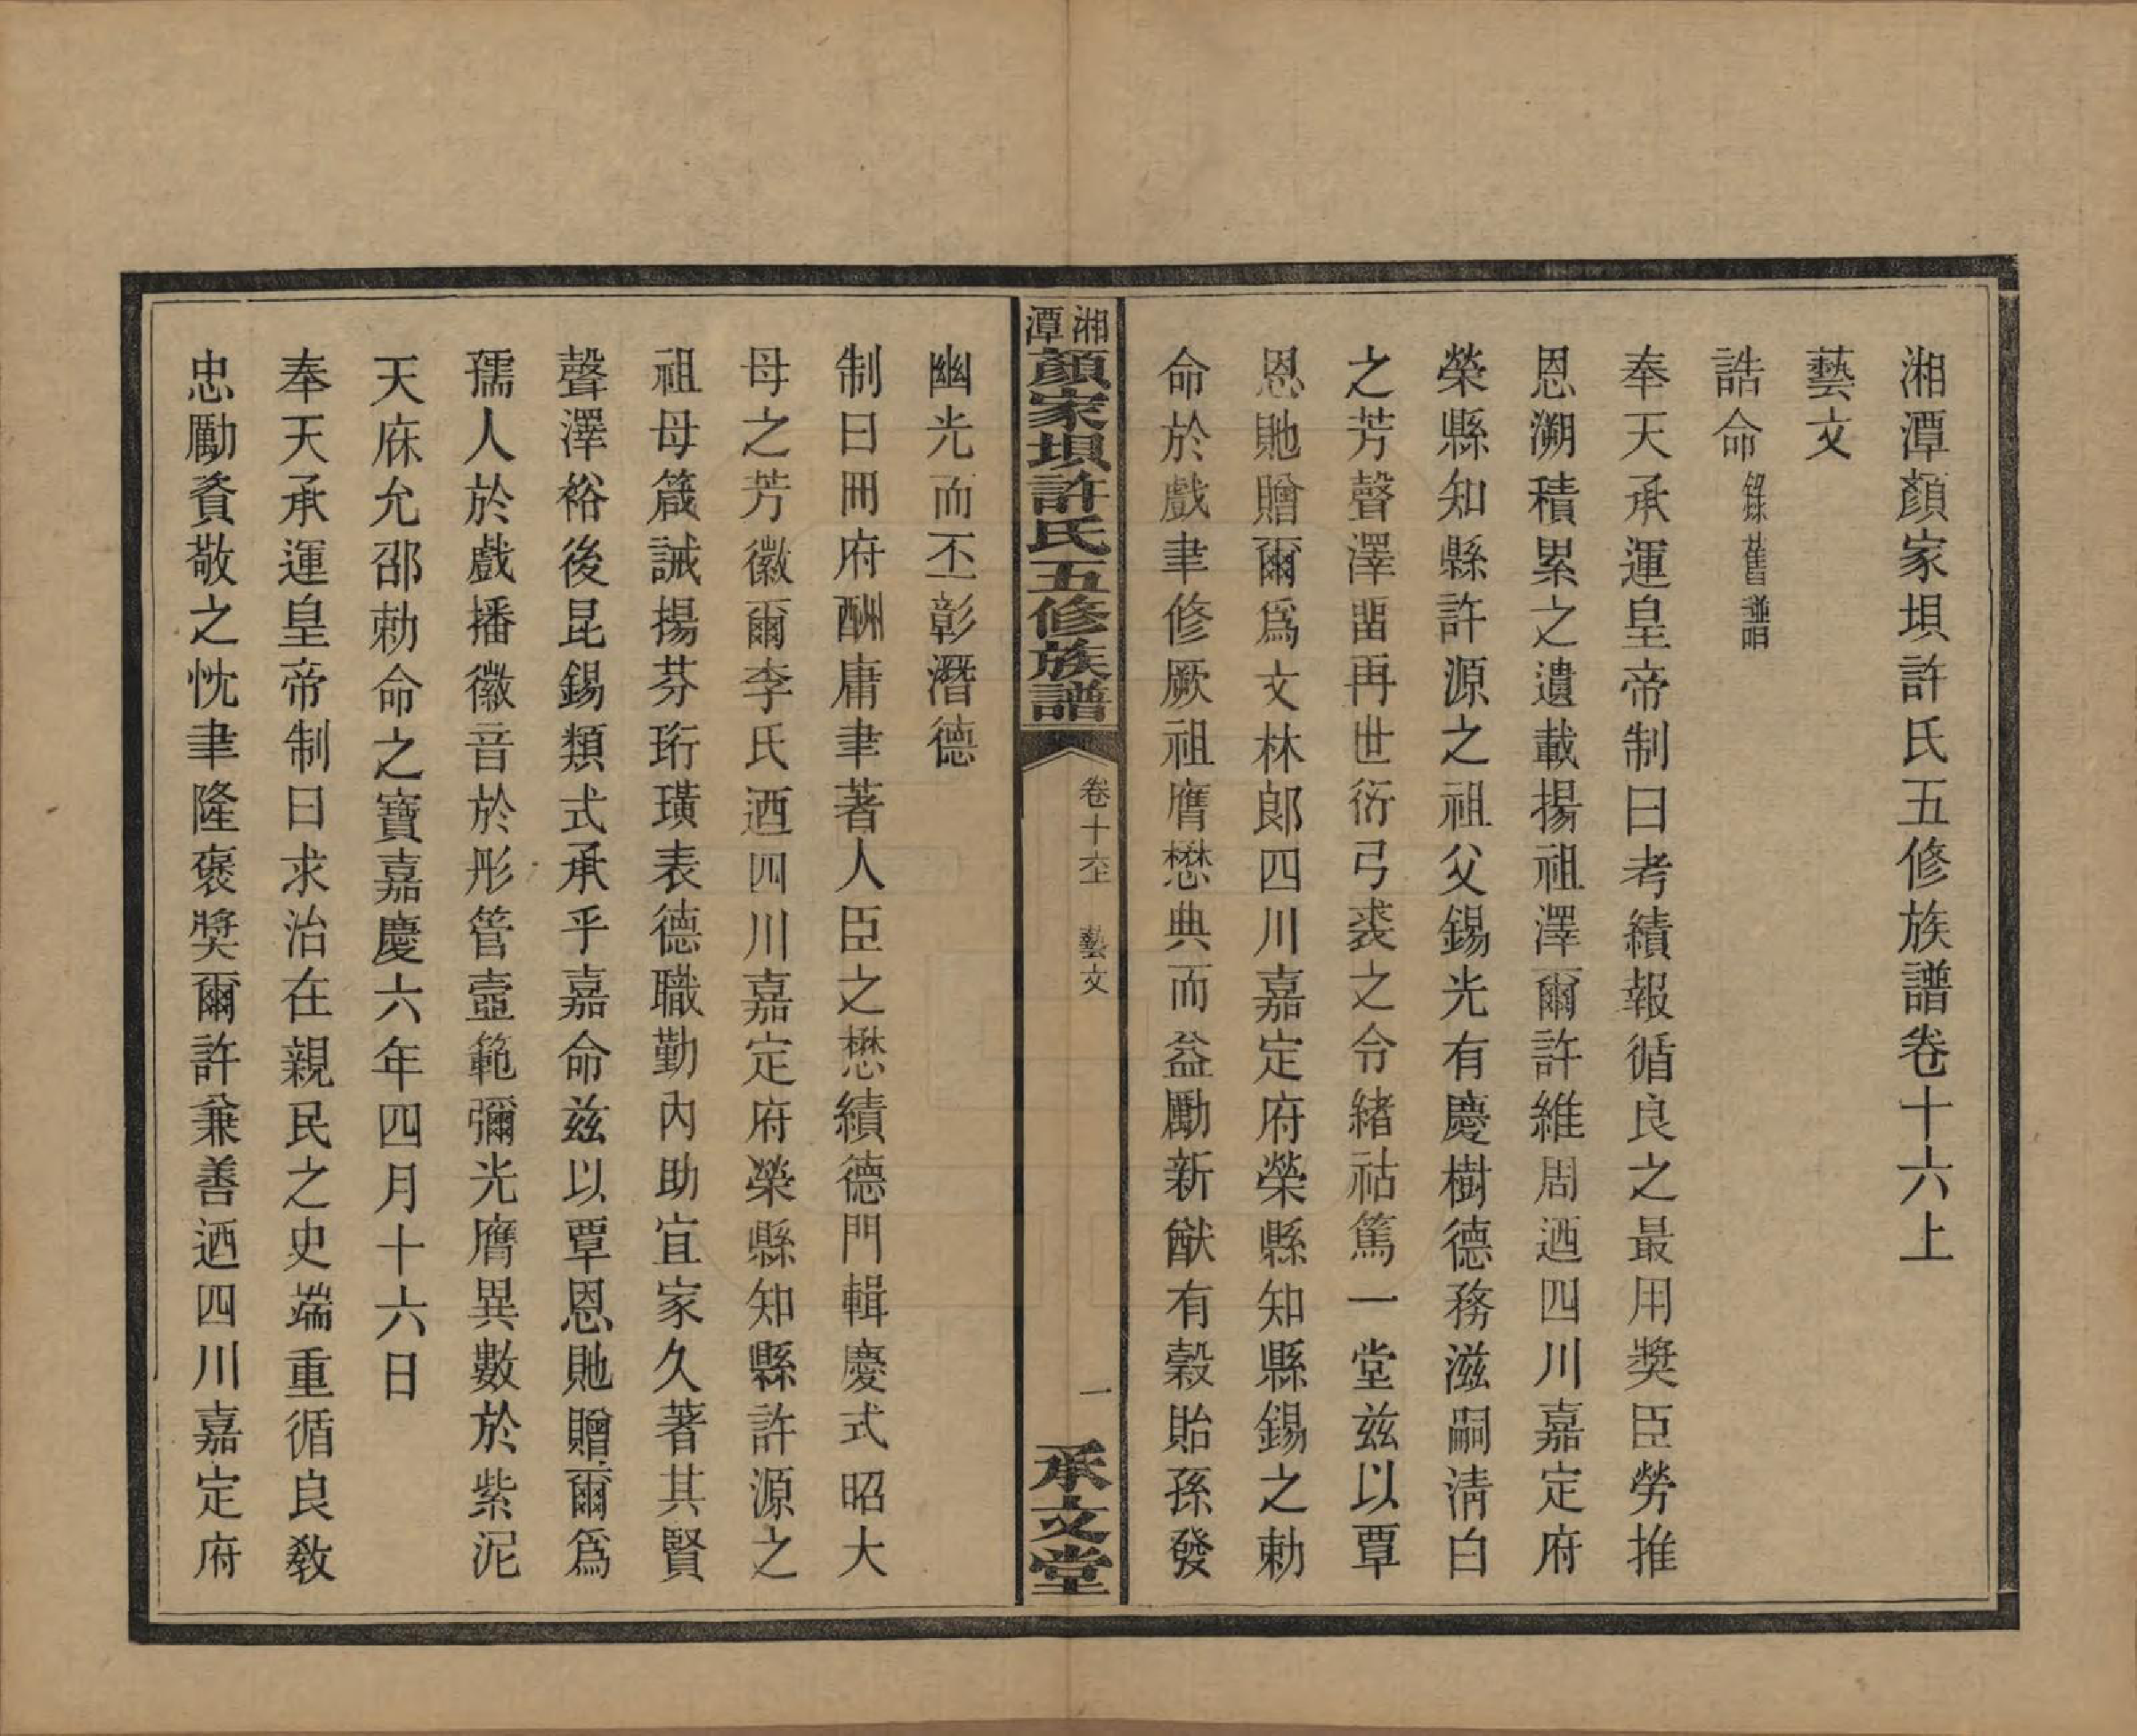 湘潭顏家垻許氏五修族譜卷十六上
藝文
誥命 錄舊譜
奉天承運皇帝制曰考績報循良之最用獎臣勞推
恩溯積累之遺載揚祖澤爾許維周迺四川嘉定府
榮縣知縣許源之祖父錫光有慶樹德務滋嗣淸白
之芳聲澤畱再世衍弓裘之令緒祜篤一堂茲以覃
恩貤贈爾爲文林郞四川嘉定府榮縣知縣錫之勅
命於戲聿修厥祖膺懋典而益勵新猷有榖貽孫發
湘潭顏家垻許氏五修族譜
卷十六上 藝文
一
承文堂
幽光而丕彰潛德
制曰冊府酬庸聿著人臣之懋績德門輯慶式昭大
母之芳徽爾李氏迺四川嘉定府榮縣知縣許源之
祖母箴誡揚芬珩璜表德職勤內助宜家久著其賢
聲澤裕後昆錫類式承乎嘉命茲以覃恩貤贈爾爲
孺人於戲播徽音於彤管壼範彌光膺異數於紫泥
天庥允邵勅命之寶嘉慶六年四月十六日
奉天承運皇帝制曰求治在親民之史端重循良敎
忠勵資敬之忱聿隆褒獎爾許兼善迺四川嘉定府